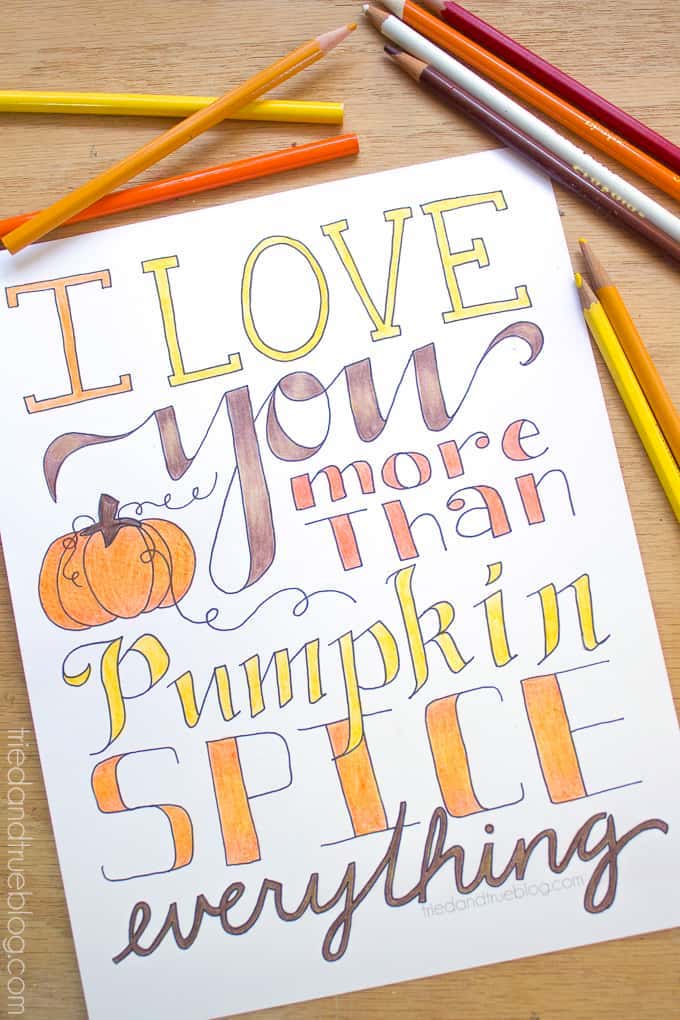 I LOVE
you
more
Than
Pumpkin
SPICE
everything
triedandtrueblog.com
triedandtrueblog.com